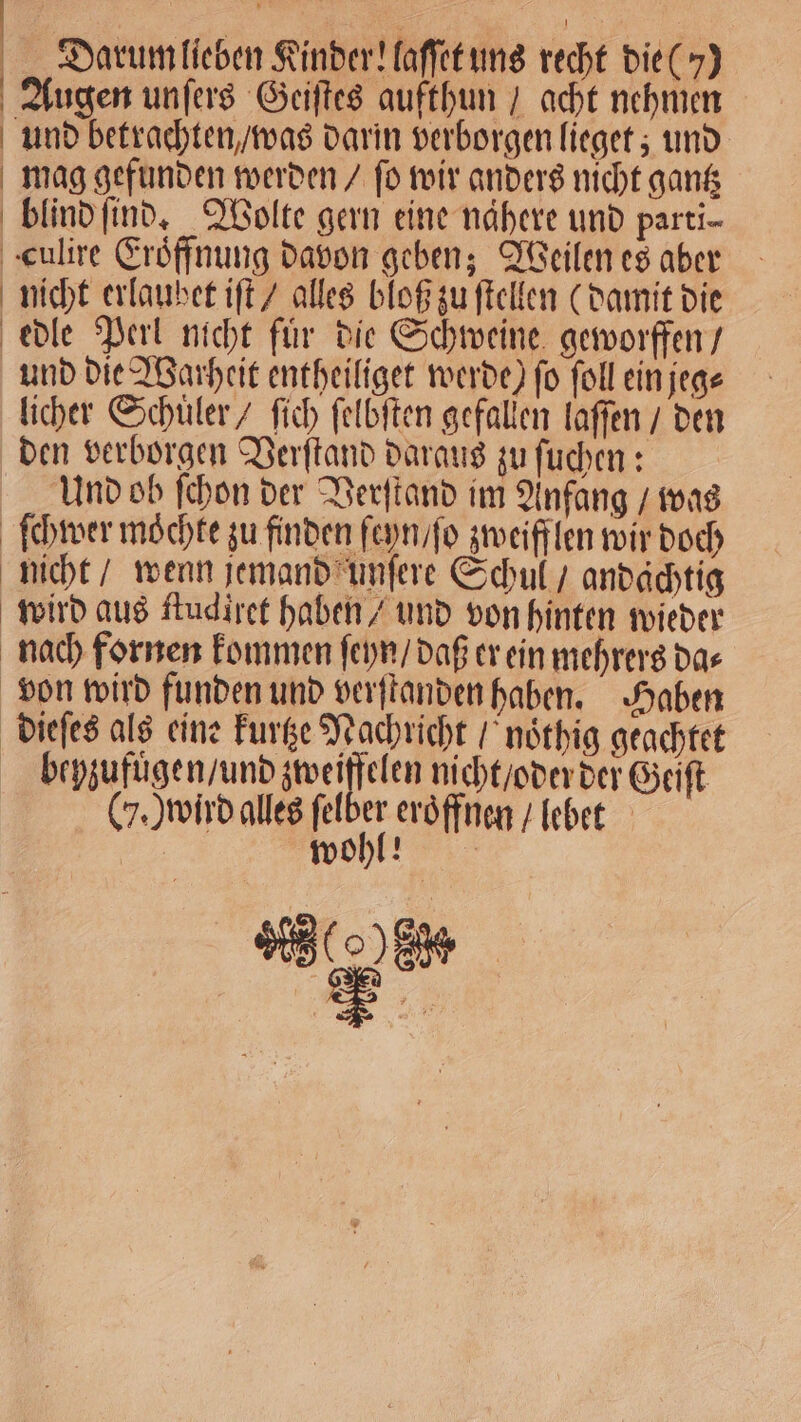 Darum lieben Kinder! laſſet uns recht die (7)
Augen unſers Geiſtes aufthun / acht nehmen
und betrachten / was darin verborgen lieget; und
mag gefunden werden / ſo wir anders nicht gantz
blind ſind. Wolte gern eine nåhere und parti-
culire Eröffnung davon geben; Weilen es aber
nicht erlaubet iſt / alles bloß zu ſtellen (damit die
edle Perl nicht für die Schweine geworffen /
und die Warheit entheiliget werde) ſo ſoll ein jeg-
licher Schůler / ſich ſelbſten gefallen laſſen / den
den verborgen Verſtand daraus zu ſuchen:
Und ob ſchon der Verſtand im Anfang / was
ſchwer möchte zu finden ſeyn / ſo zweifflen wir doch
nicht / wenn jemand unſere Schul / andåchtig
wird aus ſtudiret haben / und von hinten wieder
nach fornen kommen ſeyn / daß er ein mehrers da-
von wird funden und verſtanden haben. Haben
dieſes als eine kurtze Nachricht / nöthig geachtet
beyzufügen / und zweiffelen nicht / oder der Geiſt
(7.) wird alles ſelber eröffnen / lebet
wohl!